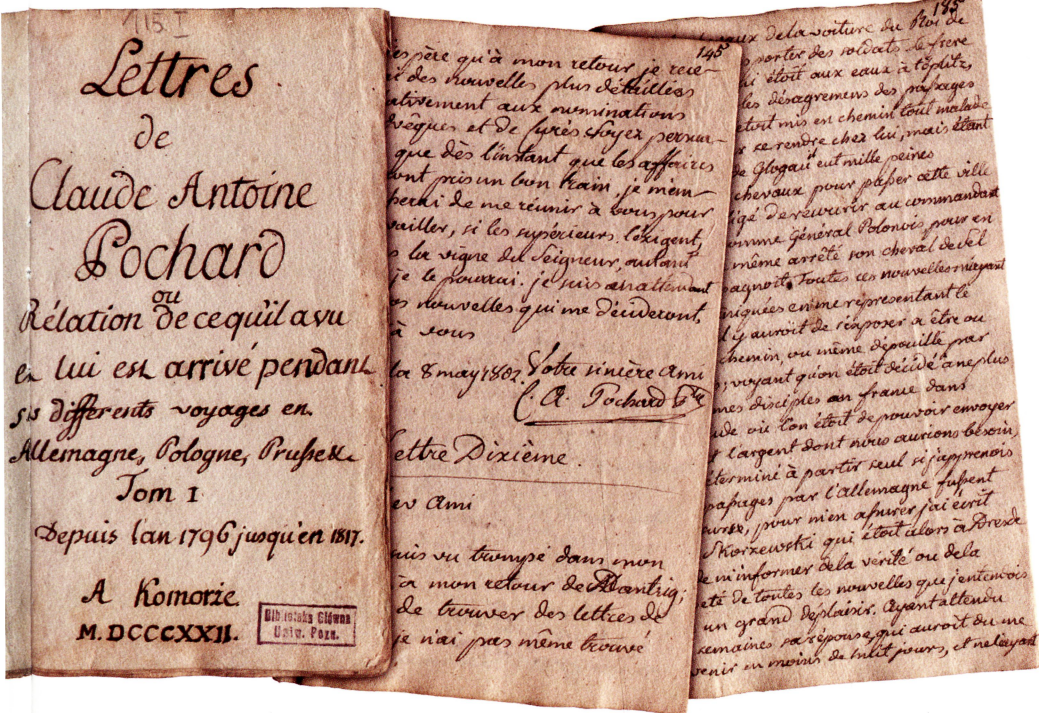 115. I
Lettres
de
Claude Antoine
Pochard
ou
Rélation de ce qu'il a vu
et lui est arrivé pendant
ses différents voyages en
Allemagne, Pologne, Prusse &c.
Tom 1
Depuis l'an 1796 jusqu'en 1817.
A Komorze.
M.DCCCXXII.
Biblioteka Główna
Uniw. Pozn.
145
espère qu'à mon retour je rece-
des nouvelles plus détaillées
ativement aux nominations
vêques et de Curés soyez persua-
que dès l'instant que les affaires
ont pris un bon train, je m'em-
de me réunir à vous pour
vailler, si les supérieurs l'exigent,
la vigne du Seigneur, autant
je le pourrai. je suis en attendant
nouvelles qui me décideront,
à vous
la 8 may 1802. Votre sincère ami
C. A. Pochard
ettre Dixième.
er Ami
suis vu trompé dans mon
à mon retour de Dantzig,
de trouver des lettres de
je n'ai pas même trouvé
185
aux de la voiture du Roi de
porter des soldats le frere
i étoit aux eaux à Töplitz
les désagremens des passages
étoit mis en chemin tout malade
se rendre chez lui, mais étant
de Glogau eut mille peines
chevaux pour passer cette ville
gé de recourir au commandant
comme Général Polonois, pour en
même arrêté son cheval de sel
agnoit. Toutes ces nouvelles m'ayant
iquées en me représentant le
il y auroit de s'exposer a être ou
chemin, ou même dépouillé par
voyant qu'on étoit décidé à ne plus
mes disciples en france dans
ude où l'on étoit de pouvoir envoyer
l'argent dont nous aurions besoin,
terminé à partir seul si j'apprenois
passages par l'allemagne fussent
pour m'en assurer j'ai écrit
Skorzewski qui étoit alors à Dresde
de m'informer de la vérité ou de la
eté de toutes les nouvelles que j'entendois
un grand deplaisir. Ayant attendu
semaines sa réponse, qui auroit du me
venir en moins de huit jours, et ne l'ayant